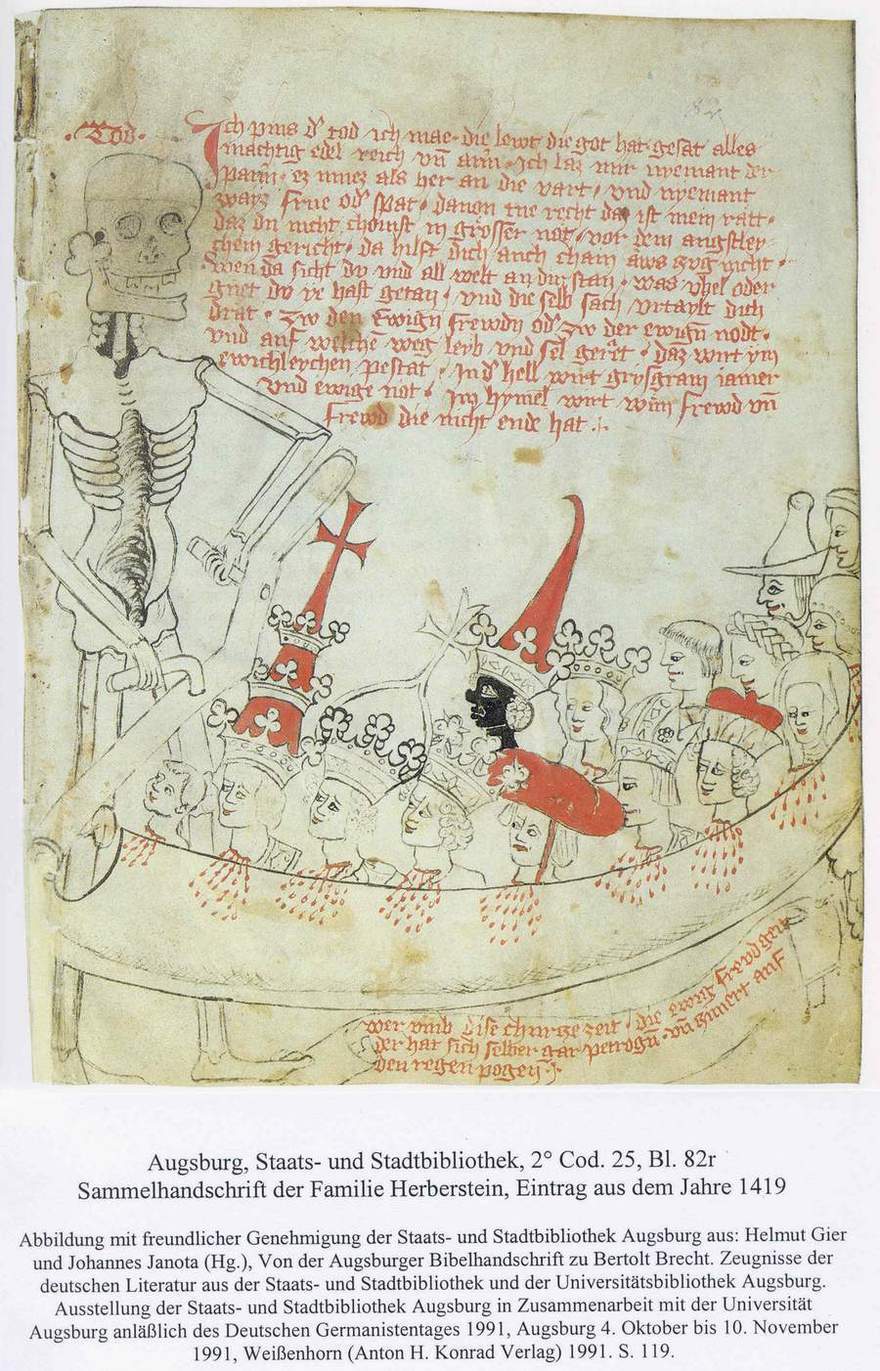 ·Tod·
Ich pins d' tod ich mae · die lewt die got hat gesat alles
mächtig edel reich vn̄ arm · Ich laz mir nyemant der
parm̄ · ez muez als her an die vart · vnd nyemant
wayz frue od' spat · dauon tue recht daz ist mein ratt ·
daz du nicht chömst in grosser not · vor dem angstley-
chem gericht · da hilft dich auch chain aws zug nicht ·
wen da sicht dy vnd all welt an dir stan · was vbel oder
guet dv ye hast getan · vnd die selb sach vrtaylt dich
drat · zw den Ewign̄ frewdn̄ od' zw der ewign̄ nodt ·
vnd auf welche weg leyb vnd sel geret · daz wirt ym
ewichleychen pestät · Ind' hell wirt grysgram iamer
vnd ewige not · Im hymel wirt wun̄ frewd vn̄
Frewd die nicht ende hat ·
wer vmb dise churze zeit · die ewig frewd geit
der hat sich selber gar petrogn̄ · vn̄ zimert auf
den regen pogen ·
Augsburg, Staats- und Stadtbibliothek, 2° Cod. 25, Bl. 82r
Sammelhandschrift der Familie Herberstein, Eintrag aus dem Jahre 1419
Abbildung mit freundlicher Genehmigung der Staats- und Stadtbibliothek Augsburg aus: Helmut Gier
und Johannes Janota (Hg.), Von der Augsburger Bibelhandschrift zu Bertolt Brecht. Zeugnisse der
deutschen Literatur aus der Staats- und Stadtbibliothek und der Universitätsbibliothek Augsburg.
Ausstellung der Staats- und Stadtbibliothek Augsburg in Zusammenarbeit mit der Universität
Augsburg anläßlich des Deutschen Germanistentages 1991, Augsburg 4. Oktober bis 10. November
1991, Weißenhorn (Anton H. Konrad Verlag) 1991. S. 119.